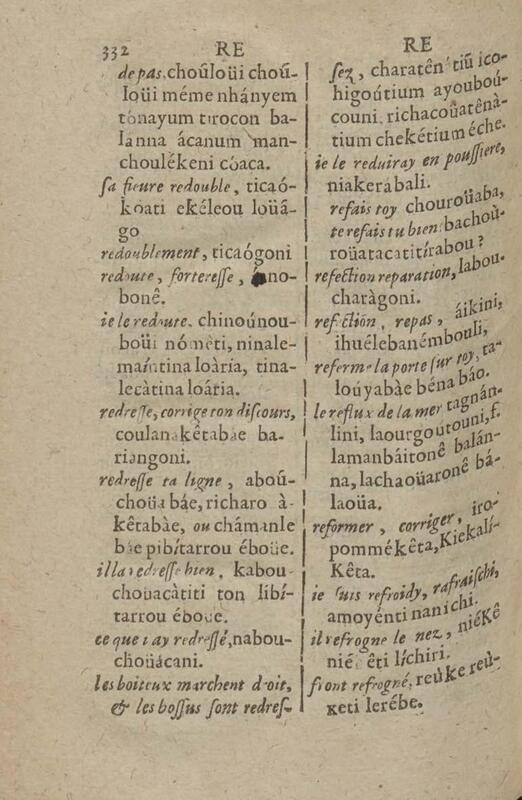 332 RE
de pas, choûloüi choû-
loüi méme nhányem
tónayum tirocon ba-
lanna ácanum man-
choulékeni cóaca.
sa fieure redouble, ticaó-
koati ekéleou loüâ-
go
redoublement, ticaógoni
redoute, forteresse,
bonê.
ie le redoute. chinoúnou-
boüi nómeti, ninale-
maíntina loària, tina-
lecàtina loária.
redresse, corrige ton discours,
coulanakêtabae ba-
riangoni.
redresse ta ligne, aboú-
choüa báe, richaro à-
kêtabàe, ou chámanle
bàe pibítarrou éboüe.
il l'a redressé bien, kabou-
choüacàtiti ton libí-
tarrou éboüe.
ce que i'ay redressé, nabou-
choüácani.
les boiteux marchent droit,
& les bossus sont redres-
RE
sez, charatên tiũ ico-
higoútium ayouboú-
couni, richacoüatênà-
tium chekétium éche.
ie le reduiray en poussiere,
niakerábali.
refais toy chouroüaba,
te refais tu bien: bachoú-
roüatacatitírabou?
refection reparation, labou-
charàgoni.
refection, repas, áikini,
ihuélebanémbouli,
referme la porte sur toy, ta-
loúyabàe béna báo.
le reflux de la mer tagnán-
lini, laourgoutouni, f.
lamanbáitonê balán-
na, lachaoüaronê bá-
laoüa.
reformer, corriger, iro-
pommékêta, Kiekalí-
Kêta.
ie suis refroidy, rafraischi,
amoyénti nanichi.
il refrogne le nez, niéKê
nié êti líchiri.
front refrogné, reùke reù-
keti lerébe.